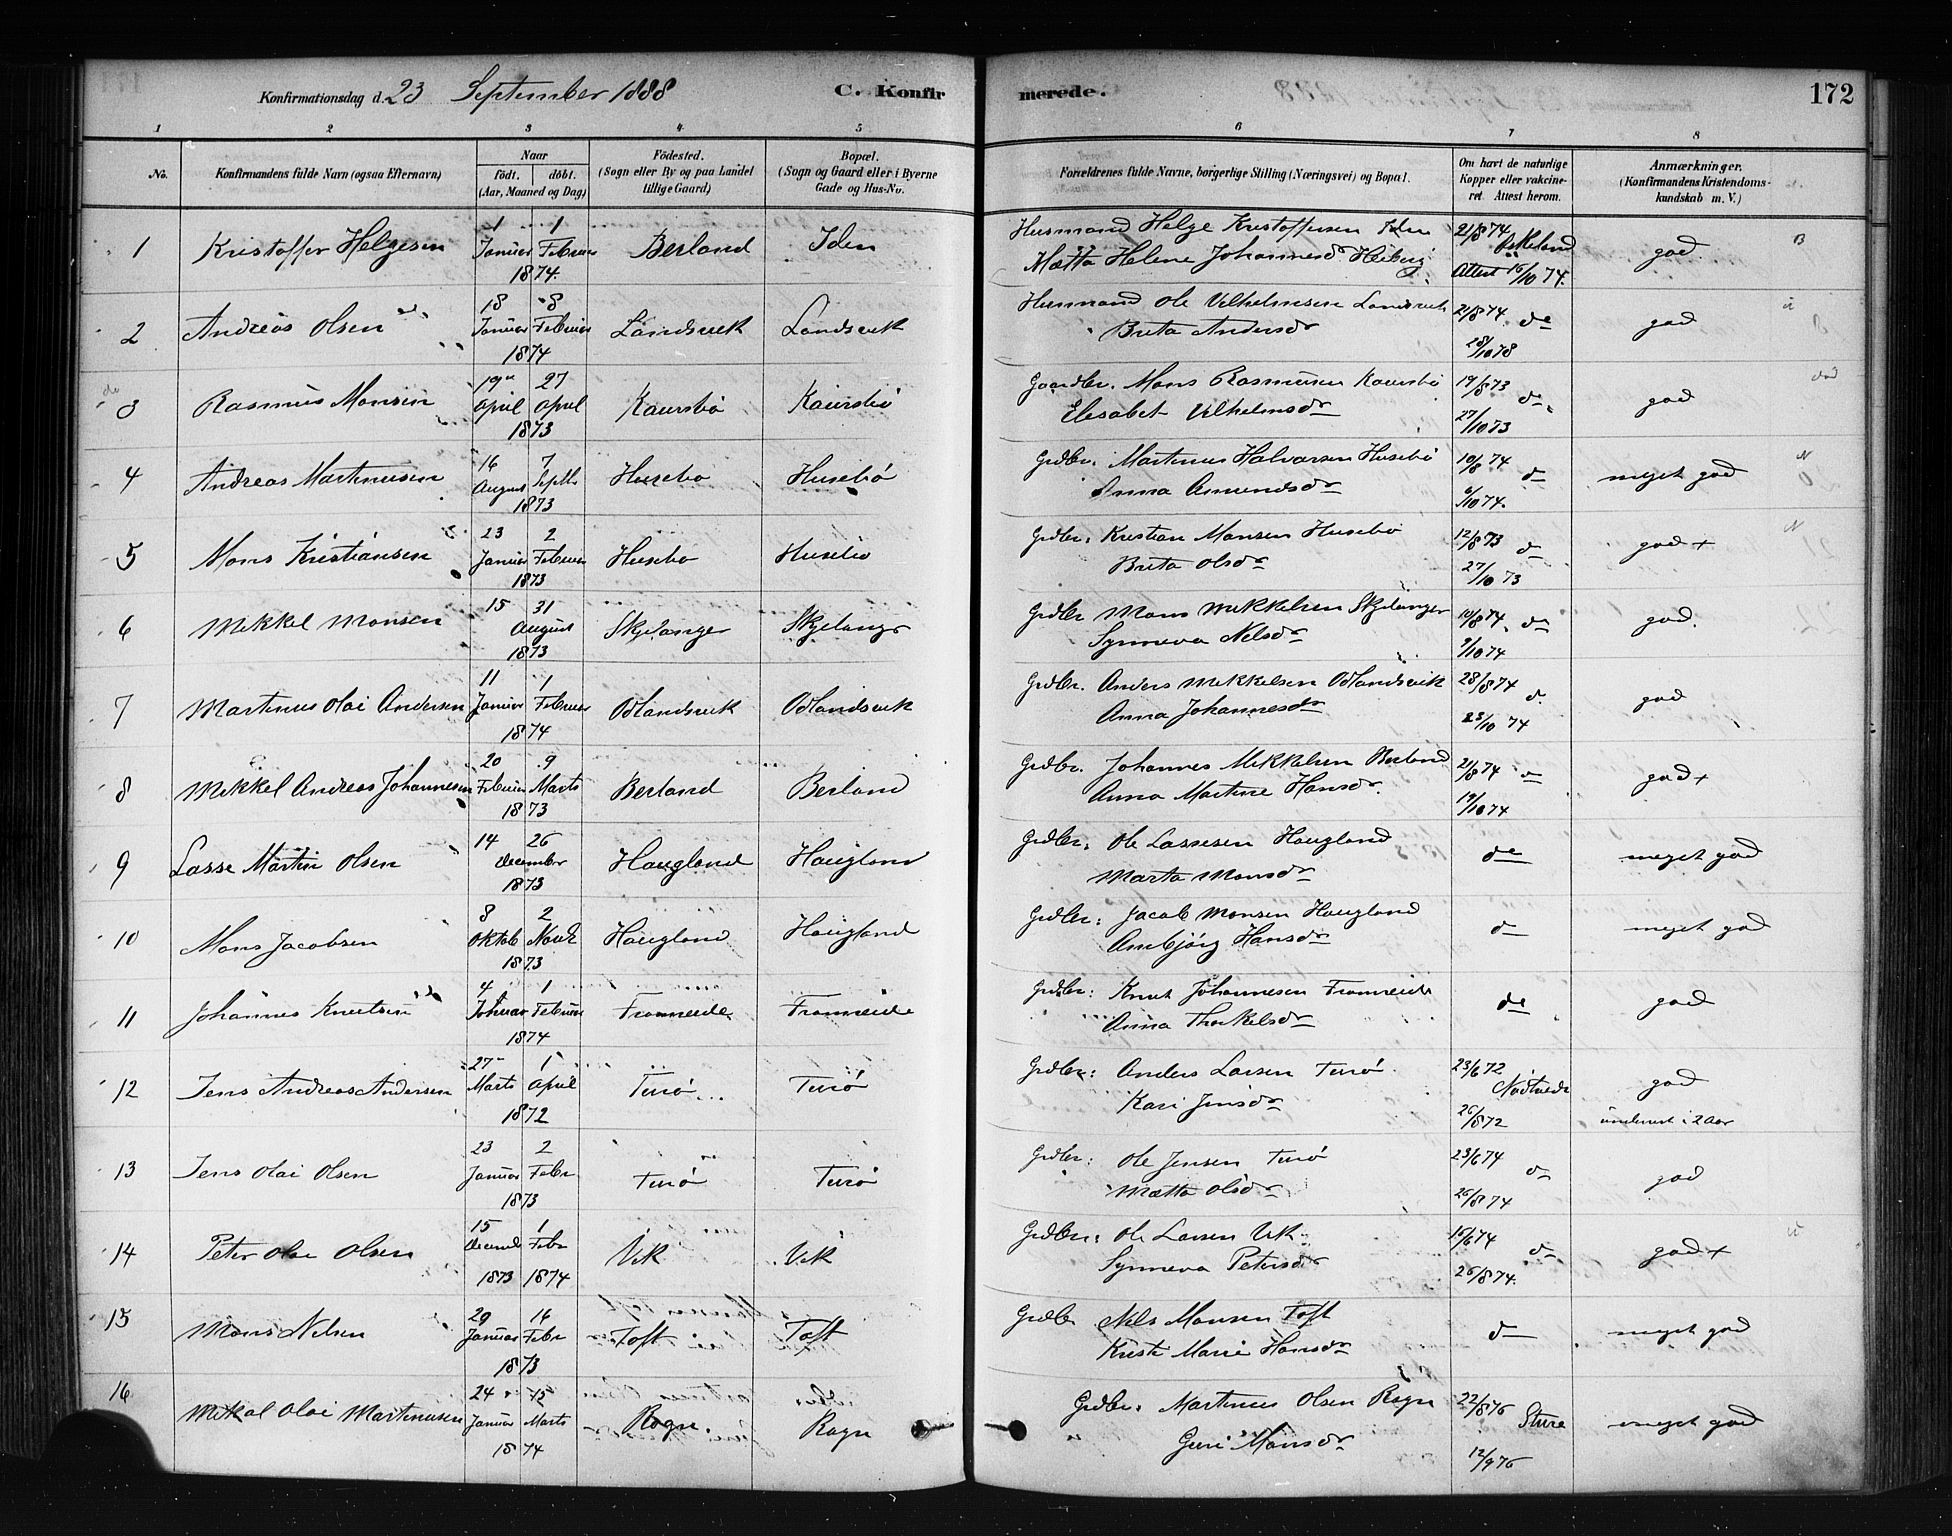 Konfirmationsdag d. 23 September 1888 C. Konfirmerede. 172
1 2 3 4 5 6 7 8
No. Konfirmandens fulde Navn (ogsaa Efternavn) Naar Födt. döbt. (Aar, Maaned og Dag) Födested. (Sogn eller By og paa Landet tillige Gaard) Bopæl. (Sogn og Gaard eller i Byerne Gade og Hus-No. Forældrenes fulde Navne, borgerlige Stilling (Næringsvei) og Bopæl. Om havt de naturlige Kopper eller vakcineret. Attest herom. Anmærkninger. (Konfirmandens Kristendomskundskab m. V.)
1 Kristoffer Helgesen 1 Januar 1 Februar 1874. Berland Iden Husmand Helge Kristoffersen Iden
Mætta Helene Johannesdr Heiberg 21/8 74 Attest 16/10 74. god
2 Andreas Olsen 18 Januar 8 Februar 1874 Landsvik Landsvik Husmand Ole Vilhelmsen Landsvik
Brita Andersdr 21/8 74 do 28/10 78 god
3 Rasmus Monsen 19 April 27 April 1873 Kaursbö Kaursbö Gaardbr. Mons Rasmusen Kaursbö
Elisabet Vilhelmsdr 19/8 73 do 27/10 73 god
4 Andreas Martinusen 16 August 7 Septb 1873 Husebø Husebø Grdbr. Martinus Halvorsen Husebø
Anna Amundsdr 10/8 74 do 9/10 74. meget god
5 Mons Kristiansen 23 Januar 2 Februar 1873 Husebø Husebø Grdbr. Kristian Monsen Husebø
Brita Olsdr 12/8 73 do 27/10 73 god +
6 Mikkel Monsen 15 31 August 1873 Skjelanger Skjelanger Grdbr Mons Mikkelsen Skjelanger
Synneva Nelsdr 10/8 74. do 9/10 74 god.
7 Martinus Olai Andersen 11 Januar 1 Februar 1874 Odlandsvik Odlandsvik Grdbr. Anders Mikkelsen Odlandsvik
Anna Johannesdr 28/8 74 do 23/10 74 god
8 Mikkel Andreas Johannesen 20 Februar 9 Marts 1873 Berland Berland Grdbr. Johannes Mikkelsen Berland
Anna Martine Hansdr. 21/8 74 do 19/10 74 god +
9 Lasse Martin Olsen 14 26 December 1873 Haugland Haugland Grdbr. Ole Lassesen Haugland
Marta Monsdr do meget god
10 Mons Jacobsen 8 Oktob 2 Novb 1873 Haugland Haugland Grdbr: Jacob Monsen Haugland
Ambjörg Hansdr do meget god
11 Johannes Knutsen 4 Januar 1 Februar 1874 Fromreide Fromreide Grdbr: Knut Johannesen Fromreide
Anna Thorkelsdr do god
12 Jens Andreas Andersen 27 Marts 1 April 1872 Turö Turö Grdbr: Anders Larsen Turö
Kari Jensdr 23/6 72 Nödtvedt 26/8 72 god
undervist i 2 Aar
13 Jens Olai Olsen 23 Januar 2 Febr 1873 Turö Turö Grdbr: Ole Jensen Turö
Mætta Olsdr 23/6 74 do 26/8 74 god
14 Peter Olai Olsen 15 Decemb 1873 1 Febr 1874 Vik Vik Grdbr: Ole Larsen Vik
Synneva Petersdr 16/6 74 do 26/8 74. god +
15 Mons Nilsen 29 Januar 16 Febr 1873 Toft Toft Grdbr Nils Monsen Toft
Kristi Marie Hansdr do meget god
16 Mikal Olai Martinusen 24 Januar 15 Marts 1874 Rogn. Rogn Grdbr. Martinus Olsen Rogn
Guri Monsdr 22/8 76 Sture 12/9 76 meget god